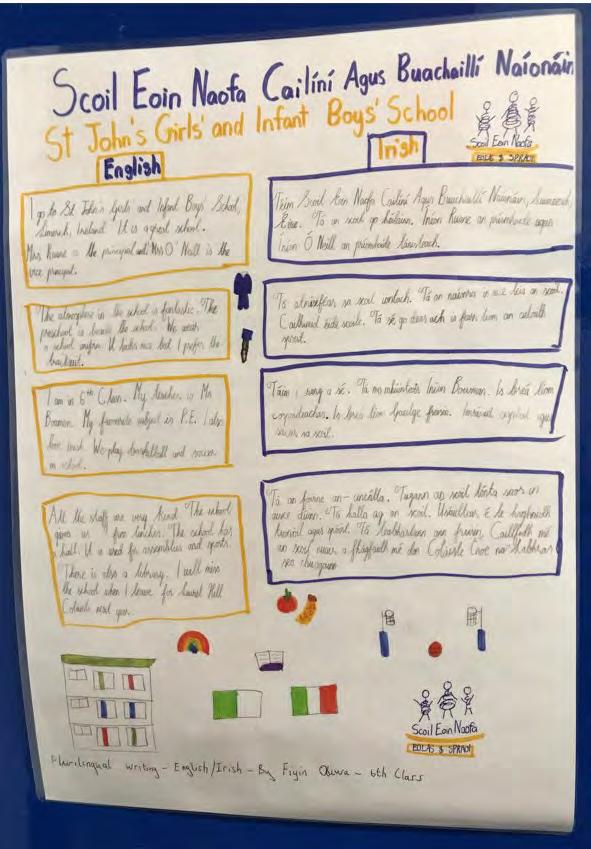 Scoil Eoin Naofa Cailíní Agus Buachaillí Naíonáin
St John's Girls' and Infant Boys' School
Scoil Eoin Naofa
EOLAS & SPRAOI
English
I go to St John's Girls and Infant Boys' School,
Limerick, Ireland. It is a great school.
Mrs Ruane is the principal and Mrs O' Neill is the
vice principal.
The atmosphere in the school is fantastic. The
preschool is beside the school. We wear
a school uniform. It looks nice but I prefer the
tracksuit.
I am in 6th Class. My teacher is Ms
Bowman. My favourite subject is P.E. I also
love Irish. We play basketball and soccer
in school.
All the staff are very kind. The school
gives us free lunches. The school has
hall. It is used for assemblies and sports.
There is also a library. I will miss
the school when I leave for Laurel Hill
Coláiste next year.
Irish
Téim Scoil Eoin Naofa Cailíní Agus Buachaillí Naíonáin,
Éire. Tá an scoil go hálainn. Iníon Ruane an príomhoide agus
Iníon Ó Neill an príomhoide
Tá sa scoil Tá an naíonra in aice leis an scoil.
Caithimid éide scoile. Tá sé go deas ach is fearr liom an
spóirt.
Táim i rang a sé. Tá mo mhúinteoir Iníon Bowman. Is breá liom
corpoideachas. Is breá liom Gaeilge freisin. agus
sa scoil.
Tá an foirne an- Tugann an scoil
dúinn. Tá halla ag an scoil.
agus spóirt. Tá leabharlann ann freisin.
an scoil nuair a fhágfaidh mé don Coláiste Cnoc na
seo chugainn
Scoil Eoin Naofa
EOLAS & SPRAOI
Plurilingual writing - English/Irish - By Fiyin - 6th Class